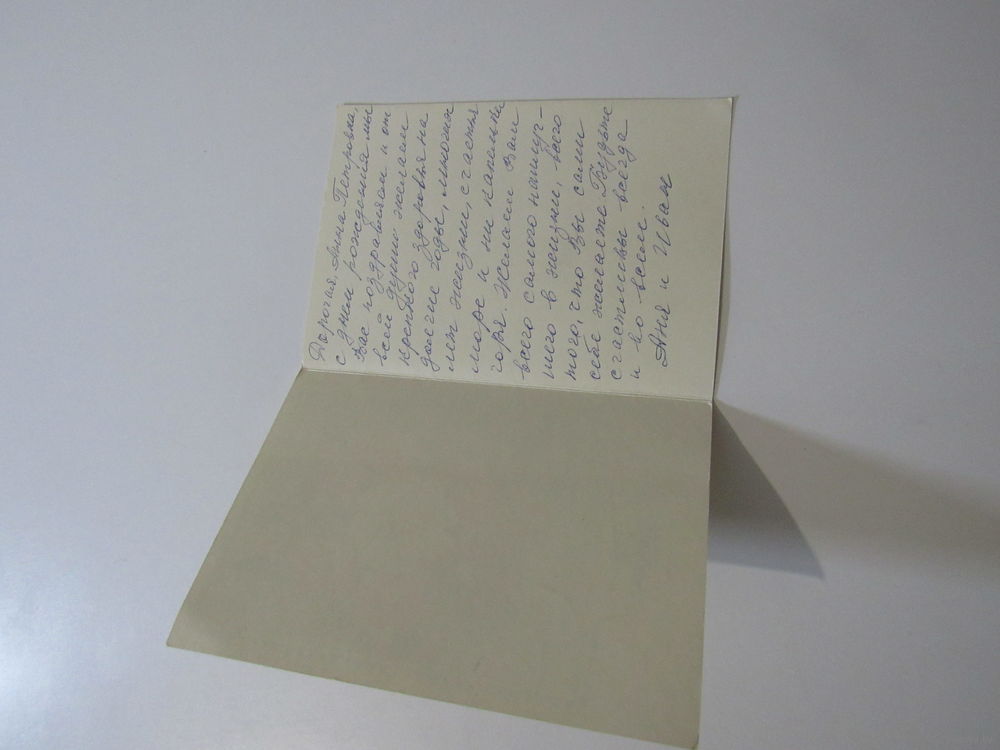 Дорогая Анна Петровна,
с днем рождения мы
Вас поздравляем и от
всей души желаем
крепкого здоровья на
долгие годы, многих
лет жизни, счастья
море и ни капельки
горя. Желаем Вам
всего самого наилуч-
шего в жизни, всего
того, что Вы сами
себе желаете. Будьте
счастливы всегда
и во всем.
Аня и Иван